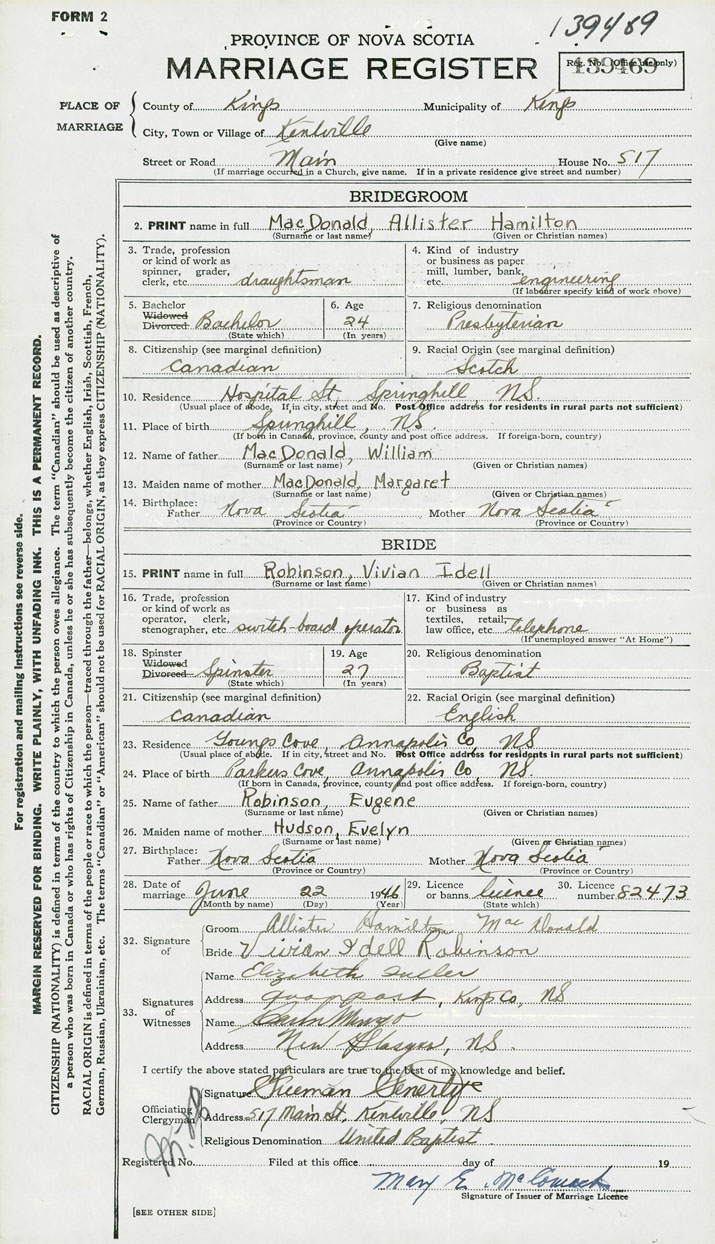 FORM 2
139489
PROVINCE OF NOVA SCOTIA
MARRIAGE REGISTER
Reg. No. (Office use only)
139489
PLACE OF MARRIAGE
County of Kings Municipality of Kings
City, Town or Village of Kentville
(Give name)
Street or Road Main House No. 517
(If marriage occurred in a Church, give name. If in a private residence give street and number)
BRIDEGROOM
2. PRINT name in full MacDonald, Allister Hamilton
(Surname or last name) (Given or Christian names)
3. Trade, profession or kind of work as spinner, grader, clerk, etc. draughtsman
4. Kind of industry or business as paper mill, lumber, bank, etc. engineering
(If labourer specify kind of work above)
5. Bachelor Widowed Divorced Bachelor
(State which)
6. Age 24
(In years)
7. Religious denomination Presbyterian
8. Citizenship (see marginal definition) Canadian
9. Racial Origin (see marginal definition) Scotch
10. Residence Hospital St, Springhill, NS.
(Usual place of abode. If in city, street and No. Post Office address for residents in rural parts not sufficient)
11. Place of birth Springhill, NS.
(If born in Canada, province, county and post office address. If foreign-born, country)
12. Name of father MacDonald, William
(Surname or last name) (Given or Christian names)
13. Maiden name of mother MacDonald, Margaret
(Surname or last name) (Given or Christian names)
14. Birthplace: Father Nova Scotia Mother Nova Scotia
(Province or Country) (Province or Country)
BRIDE
15. PRINT name in full Robinson, Vivian Idell
(Surname or last name) (Given or Christian names)
16. Trade, profession or kind of work as operator, clerk, stenographer, etc. switch-board operator
17. Kind of industry or business as textiles, retail, law office, etc. telephone
(If unemployed answer "At Home")
18. Spinster Widowed Divorced Spinster
(State which)
19. Age 27
(In years)
20. Religious denomination Baptist
21. Citizenship (see marginal definition) Canadian
22. Racial Origin (see marginal definition) English
23. Residence Youngs Cove, Annapolis Co, NS
(Usual place of abode. If in city, street and No. Post Office address for residents in rural parts not sufficient)
24. Place of birth Parkers Cove, Annapolis Co, NS.
(If born in Canada, province, county and post office address. If foreign-born, country)
25. Name of father Robinson, Eugene
(Surname or last name) (Given or Christian names)
26. Maiden name of mother Hudson, Evelyn
(Surname or last name) (Given or Christian names)
27. Birthplace: Father Nova Scotia Mother Nova Scotia
(Province or Country) (Province or Country)
28. Date of marriage June 22 1946
(Month by name) (Day) (Year)
29. Licence or banns licence
(State which)
30. Licence number 82473
32. Signature of
Groom Allister Hamilton MacDonald
Bride Vivian Idell Robinson
33. Signatures of Witnesses
Name Elizabeth
Address Kings Co, NS
Name
Address New Glasgow, NS.
I certify the above stated particulars are true to the best of my knowledge and belief.
Officiating Clergyman
Signature Freeman Fenerty
Address 517 Main St, Kentville, NS
Religious Denomination United Baptist
Registered No. Filed at this office day of 19
Mary E. McCormack
Signature of Issuer of Marriage Licence
[SEE OTHER SIDE]
For registration and mailing instructions see reverse side.
MARGIN RESERVED FOR BINDING. WRITE PLAINLY, WITH UNFADING INK. THIS IS A PERMANENT RECORD.
CITIZENSHIP (NATIONALITY) is defined in terms of the country to which the person owes allegiance. The term "Canadian" should be used as descriptive of
a person who was born in Canada or who has rights of Citizenship in Canada, unless he or she has subsequently become the citizen of another country.
RACIAL ORIGIN is defined in terms of the people or race to which the person—traced through the father—belongs, whether English, Irish, Scottish, French,
German, Russian, Ukrainian, etc. The terms "Canadian" or "American" should not be used for RACIAL ORIGIN, as they express CITIZENSHIP (NATIONALITY).